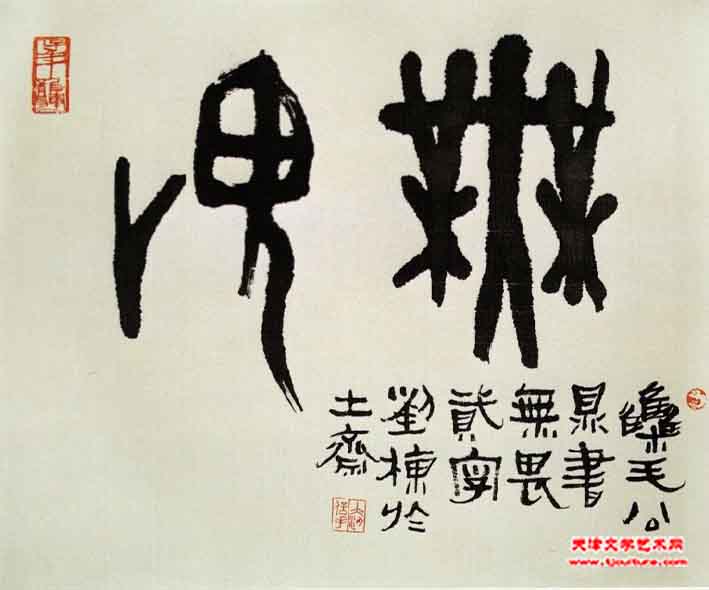 無畏
雧毛公
鼎書
無畏
貳字
劉棟於
土齋
天津文学艺术网
www.tjculture.com